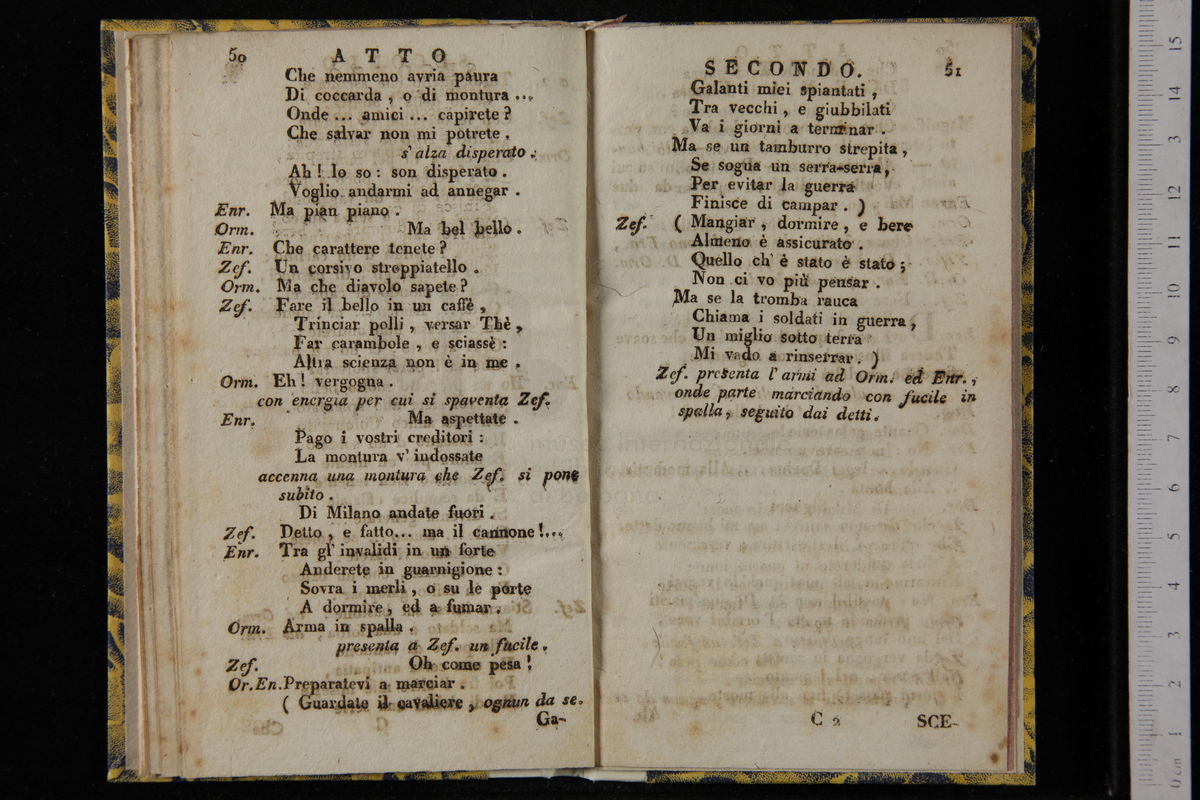 50 ATTO
Che nemmeno avria paura
Di coccarda , o di montura ...
Onde ... amici ... capirete ?
Che salvar non mi potrete .
s' alza disperato .
Ah ! lo so : son disperato .
Voglio andarmi ad annegar .
Enr. Ma pian piano .
Orm. Ma bel bello .
Enr. Che carattere tenete ?
Zef. Un corsivo stroppiatello .
Orm. Ma che diavolo sapete ?
Zef. Fare il bello in un caffè ,
Trinciar polli , versar Thè ,
Far carambole , e sciassè :
Altra scienza non è in me .
Orm. Eh ! vergogna .
con energia per cui si spaventa Zef.
Enr. Ma aspettate .
Pago i vostri creditori :
La montura v' indossate
accenna una montura che Zef. si pone
subito .
Di Milano andate fuori .
Zef. Detto , e fatto... ma il cannone !...
Enr. Tra gl' invalidi in un forte
Anderete in guarnigione :
Sovra i merli , o su le porte
A dormire , ed a fumar .
Orm. Arma in spalla .
presenta a Zef. un fucile .
Zef. Oh come pesa !
Or.En.Preparatevi a marciar .
( Guardate il cavaliere , ognun da se.
Ga-
SECONDO. 51
Galanti miei spiantati ,
Tra vecchi , e giubbilati
Va i giorni a terminar .
Ma se un tamburro strepita ,
Se sogna un serra-serra,
Per evitar la guerra
Finisce di campar . )
Zef. ( Mangiar , dormire , e bere
Almeno è assicurato .
Quello ch' è stato è stato ;
Non ci vo più pensar .
Ma se la tromba rauca
Chiama i soldati in guerra ,
Un miglio sotto terra
Mi vado a rinserrar. )
Zef. presenta l' armi ad Orm. ed Enr. ,
onde parte marciando con fucile in
spalla , seguito dai detti.
C 2 SCE-
0 cm 1 2 3 4 5 6 7 8 9 10 11 12 13 14 15